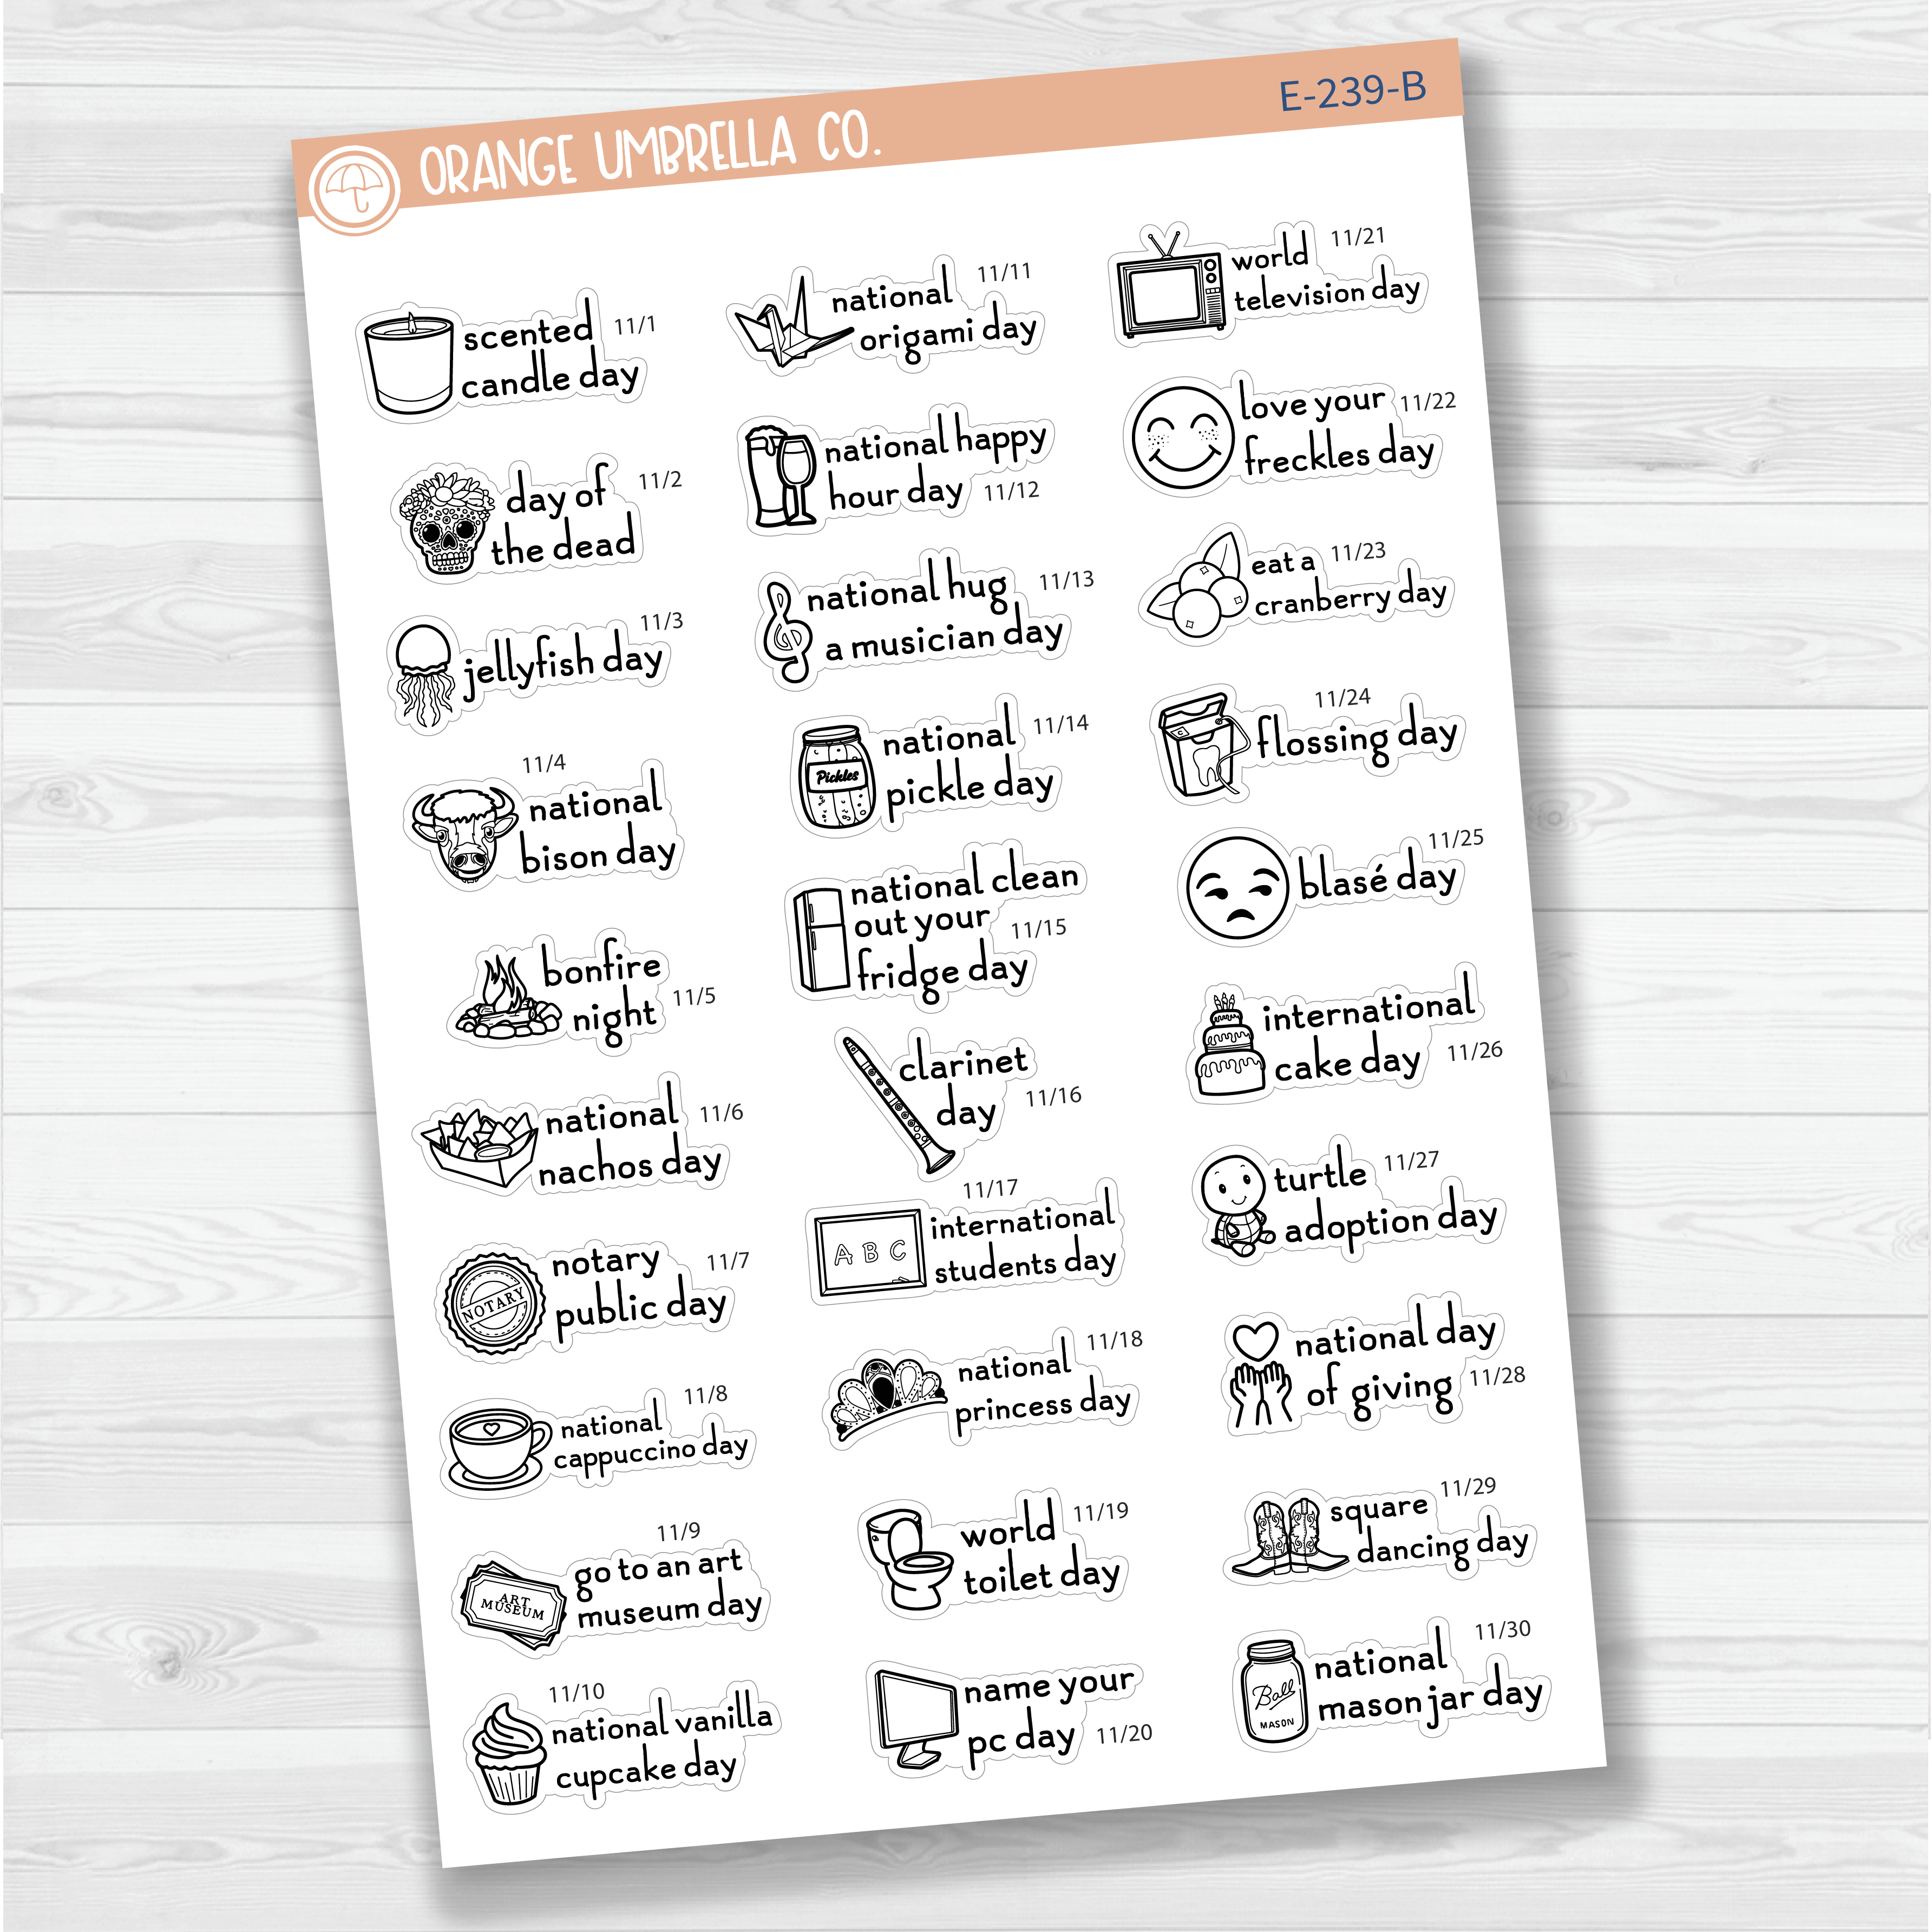 ORANGE UMBRELLA CO.
E-239-B
scented
candle day
11/1
day of
the dead
11/2
jellyfish day
11/3
11/4
national
bison day
bonfire
night
11/5
national
nachos day
11/6
NOTARY
notary
public day
11/7
national
cappuccino day
11/8
11/9
ART
MUSEUM
go to an art
museum day
11/10
national vanilla
cupcake day
national
origami day
11/11
national happy
hour day
11/12
national hug
a musician day
11/13
Pickles
national
pickle day
11/14
national clean
out your
fridge day
11/15
clarinet
day
11/16
11/17
A B C
international
students day
national
princess day
11/18
world
toilet day
11/19
name your
pc day
11/20
world
television day
11/21
love your
freckles day
11/22
eat a
cranberry day
11/23
11/24
flossing day
11/25
blasé day
international
cake day
11/26
turtle
adoption day
11/27
national day
of giving
11/28
square
dancing day
11/29
Ball
MASON
national
mason jar day
11/30